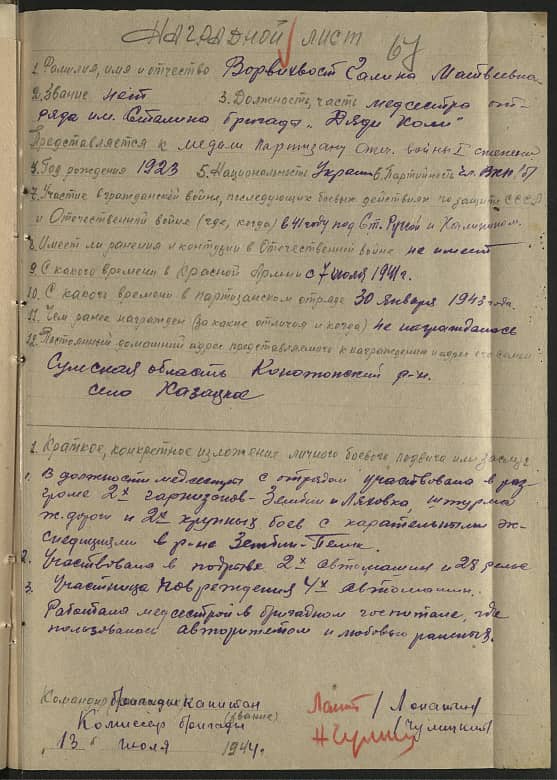 НАГРАДНОЙ ЛИСТ 67
1. Фамилия, имя и отчество Ворвихвост Галина Матвеевна
2. Звание нет 3. Должность, часть медсестра от-
ряда им. Сталина бригады „Дяди Коли"
Представляется к медали Партизану Отеч. войны I степени
4. Год рождения 1923 5. Национальность Украин. 6. Партийность чл. ВКП/б/
7. Участие в гражданской войне, последующих боевых действиях по защите СССР
и Отечественной войне (где, когда) в 41 году под Ст. Руссой и
8. Имеет ли ранения и контузии в Отечественной войне не имеет
9. С какого времени в Красной Армии с 7 июля 1941 г.
10. С какого времени в партизанском отряде 30 января 1943 года.
11. Чем ранее награжден (за какие отличия и когда) не награждалась
12. Постоянный домашний адрес представляемого к награждению и адрес его семьи
Сумская область Конотопский р-н.
село Казацкое
1. Краткое, конкретное изложение личного боевого подвига или заслуг
1. В должности медсестры с отрядом участвовала в раз-
громе 2х гарнизонов - Зембин и Ляховка, штурма
ж. дороги и 2х крупных боев с карательными эк-
спедициями в р-не Зембин-
2. Участвовала в подрыве 2х автомашин и 28 рельс
3. Участница повреждения 4х автомашин.
Работала медсестрой в бригадном госпитале, где
пользовалась авторитетом и любовью раненых.
Командир бригады капитан / Лопатин /
(звание)
Комиссар бригады /Чулицкий/
„13" июля 1944 г.